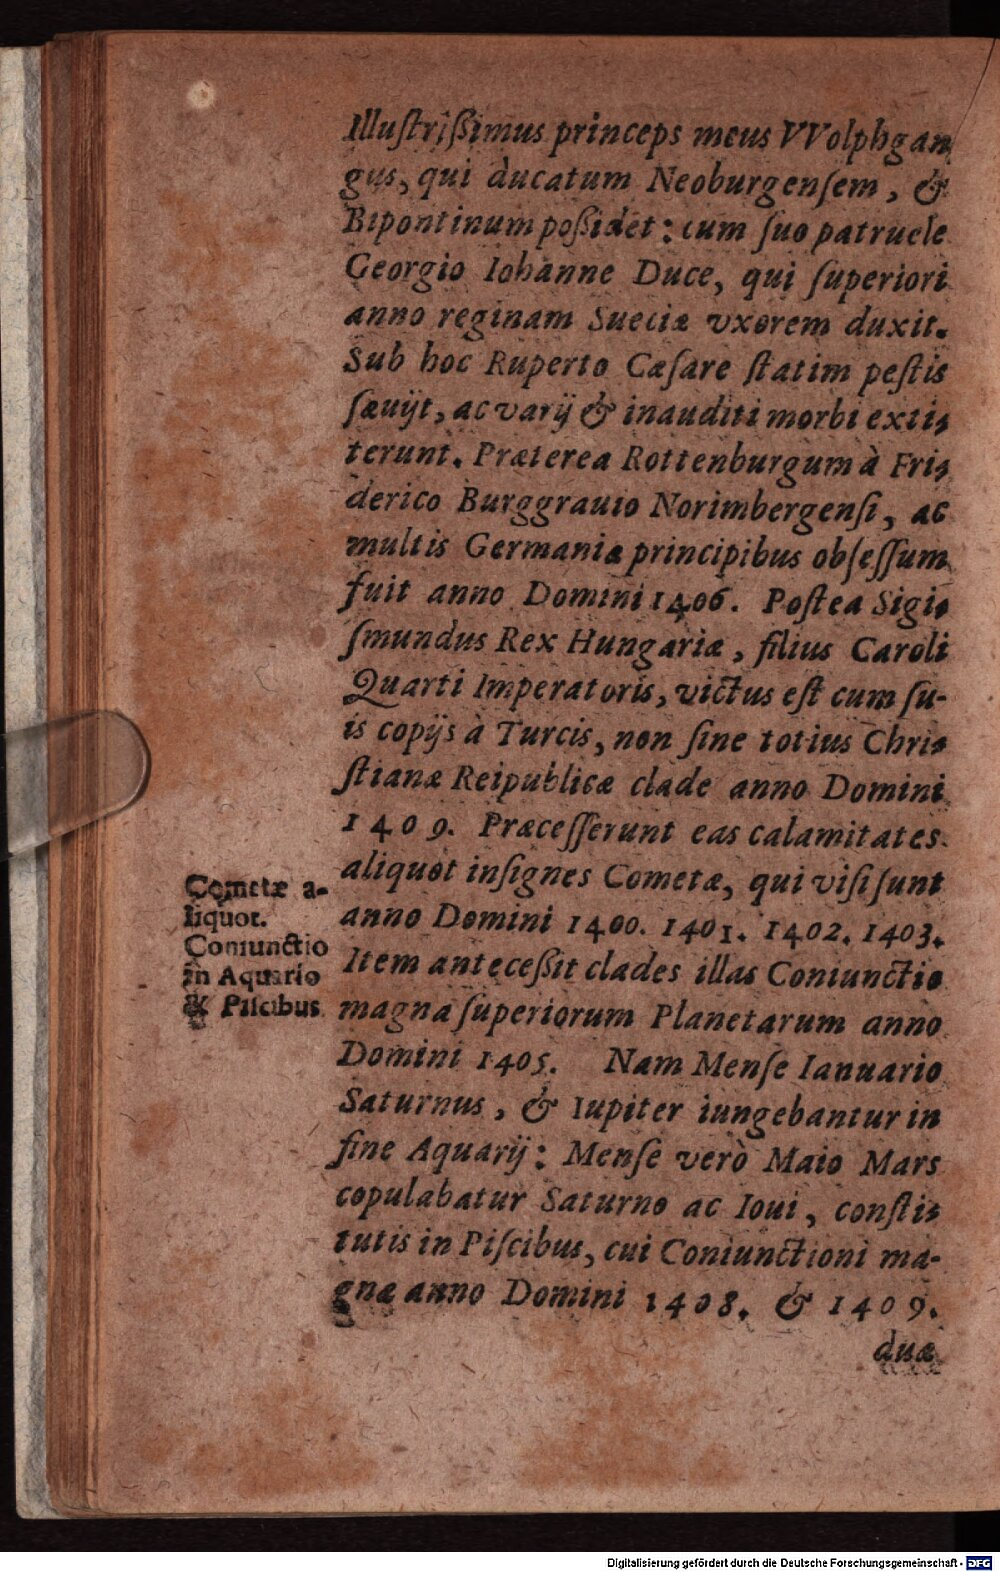 Illuſtriſſimus princeps meus VVolphgan
gus, qui ducatum Neoburgenſem, &
Bipontinum poßidet: cum ſuo patruele
Georgio Iohanne Duce, qui ſuperiori
anno reginam Sueciæ vxorem duxit.
Sub hoc Ruperto Cæſare ſtatim peſtis
ſæuijt, ac varij & inauditi morbi extis
terunt. Præterea Rottenburgum à Fris
derico Burggrauio Norimbergenſi, ac
multis Germaniæ principibus obſeſſum
fuit anno Domini 1406. Poſtea Sigis
ſmundus Rex Hungariæ, filius Caroli
Quarti Imperatoris, victus eſt cum ſu-
is copijs à Turcis, non ſine totius Chris
ſtianæ Reipublicæ clade anno Domini
1409. Præceſſerunt eas calamitates
aliquot inſignes Cometæ, qui viſi ſunt
anno Domini 1400. 1401. 1402. 1403.
Item anteceßit clades illas Coniunctio
magna ſuperiorum Planetarum anno
Domini 1405. Nam Menſe Ianuario
Saturnus, & Iupiter iungebantur in
fine Aquarij: Menſe verò Maio Mars
copulabatur Saturno ac Ioui, conſtis
tutis in Piſcibus, cui Coniunctioni ma-
gnæ anno Domini 1408. & 1409.
duæ
Cometæ a-
liquot.
Coniunctio
in Aquario
& Piſcibus
Digitalisierung gefördert durch die Deutsche Forschungsgemeinschaft - DFG